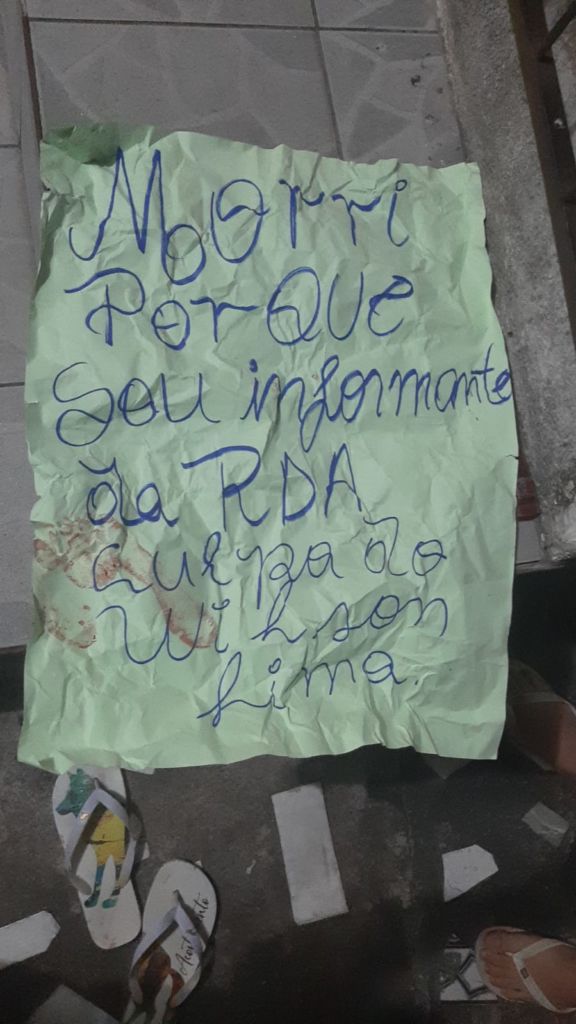 Morri
PorQUe
Sou informante
da RDA
culpa do
Wilson
Lima.